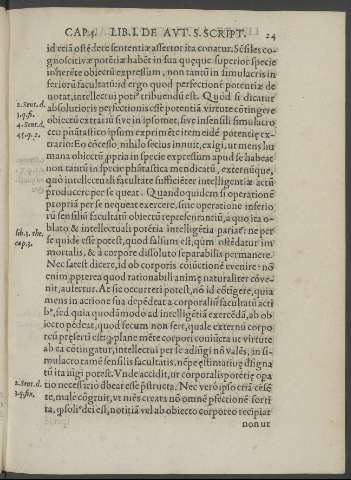 CAP.5. LIB.I. DE AVT. S. SCRIPT. 24
id etiā oſtēdere ſententiæ aſſertor ita conatur. Sēſiles co-
gnoſcitivæ potētiæ habēt in ſua quęque ſuperior ſpecie
inhærēte obiectū expreſſum, non tantū in ſimulacris in
feriorū facultatū: id ergo quod perfectionē potentiæ de
notat, intellectui poti⁹ tribuendū eſt. Quod ſi dicatur
2. Sent. d. abſolutioris perfectionis eſſe potentiā virtute cōtingere
3. q. fi. obiectū extra iu ſive in ipſo met, ſive inſenſili ſimulacro
4. Sent. d. ceu phātaſtico ipſum exprimēte item eidē potentiæ ex-
45. q. 2. trario: Eo cōceſſo, nihilo ſecius innuit, exigi, ut mens hu
mana obiectū, ppria in ſpecie expreſſum apud ſe habeat
non tantū in ſpecie phātaſtica mendicatū, externūque,
quò intellectualis facultate ſufficiēter intelligentiæ actū
producere per ſe queat. Quando quidem ſi operationē
propriā per ſe nequeat exercere, ſine operatione inferio
rū ſenſiliū facultatū obiectū repreſentantiū, a quo ita o-
lib. 3. the. blato & intellectuali potētia intelligētia pariat: ne per
cap. 3. ſe quidē eſſe poteſt, quod falſum eſt, qūm oſtēdatur im
mortalis, & à corpore diſſoluto ſeparabilis permanere.
Nec ſat eſt dicere, id ob corporis coiūctionē evenire: nō
enim ppterea quod rationabili animę naturaliter cōve-
nit, aufertur. At ſic occurreri poteſt, nō id cōtigere, quia
mens in actione ſua depēdeat a corporaliū facultatū acti
b⁹, ſed quia quodā modo ad intelligētiā exercēdā, ab ob
iecto pēdeat, quod ſecum non fert, quale externū corpo
reū pręſerti eſt: plane mēte corpori coniūcta ut virtute
ab ea cōtingatur, intellectui per ſe adiūgi nō valēs, in ſi-
mulacro tamē ſenſilis facultatis,
tū ita iūgi poteſt. Vnde accidit, ut corporalis potētię opa
2. Sent. d. tio neceſſario dbeat eſſe pſtructa. Nec verò ipſo etiā cēſē
3. q. fin. te, male cōgruit, ut mēs creata nō omnē pfectionē ſorti
ta, ſoli⁹ dei eſt, notitiā vel ab obiecto corporeo recipiat
non ut